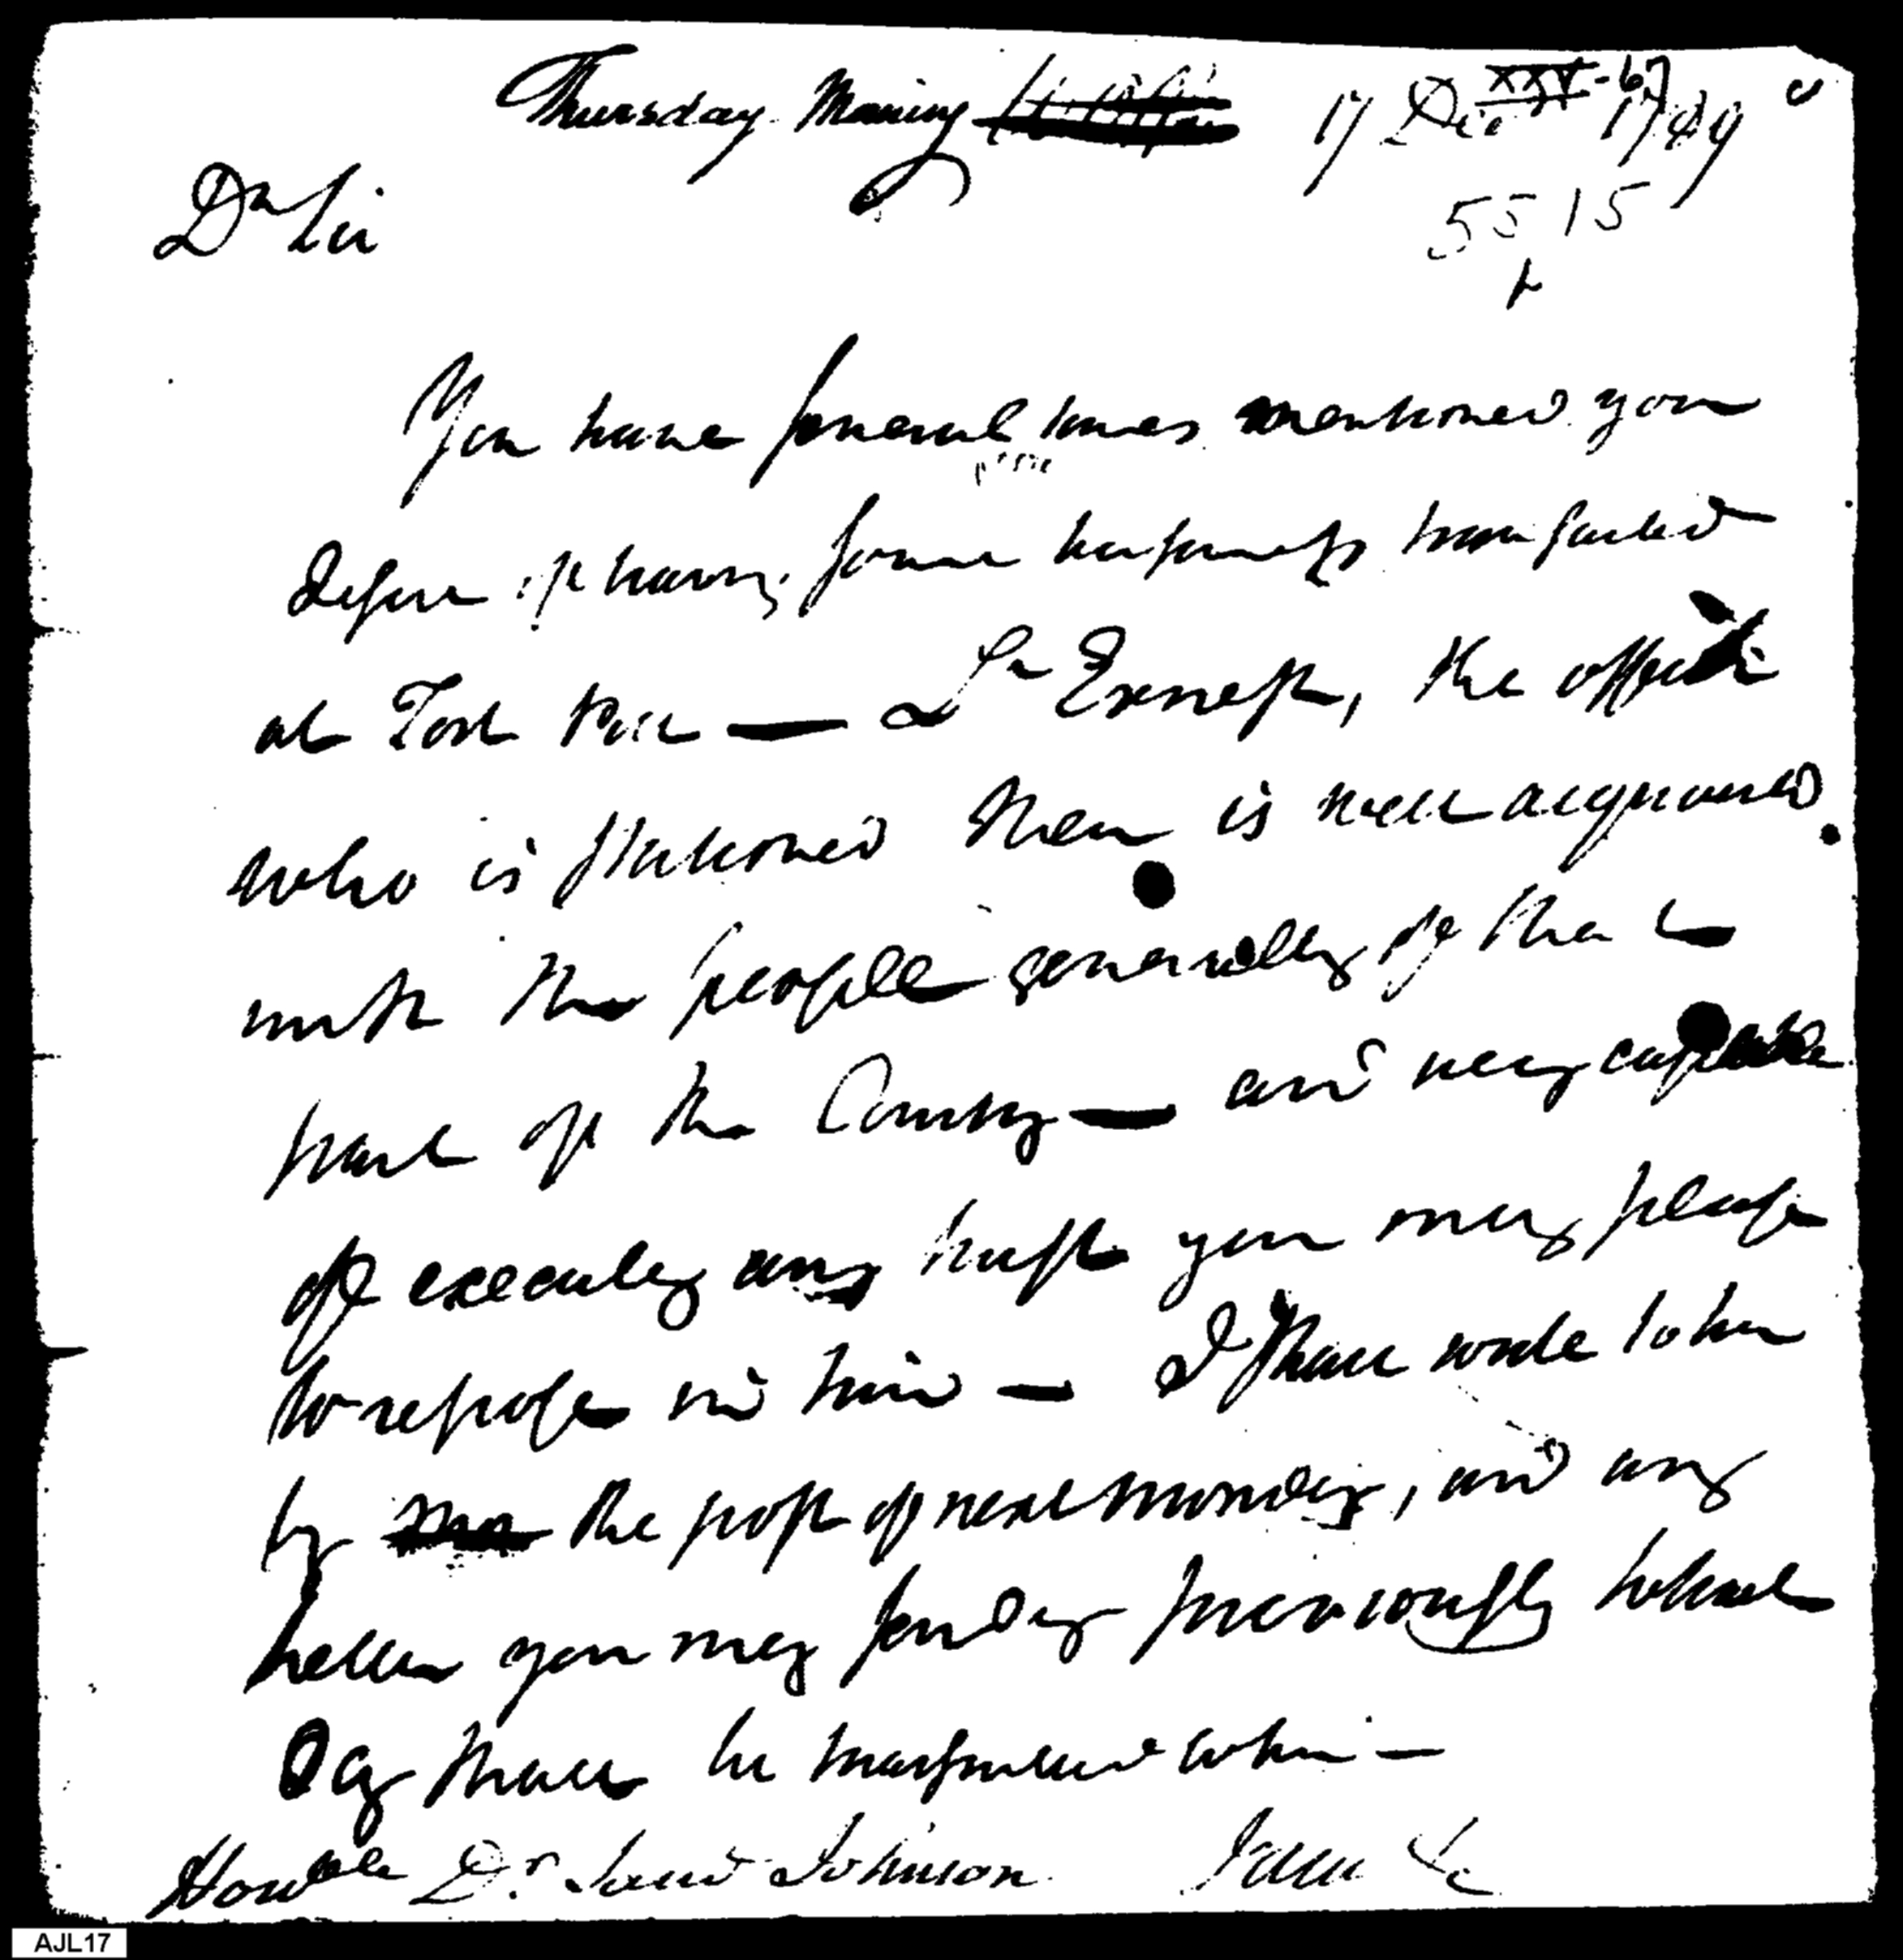 Thursday Morning 17 Dec 1789
XXV-67
Dr Sir
5515
You have several times mentioned your
desire of having some business transacted
at Fort Pitt — Lr Ernest, the officer
who is stationed there is well acquainted
with the people generally of that
part of the Country — and very capable
of executing any trust you may please
to repose in him — I shall write to him
by the post of next Monday, and any
letter you may send by previously to that
Day shall be transmitted to him —
Honble Dr. Saml Johnson
AJL17